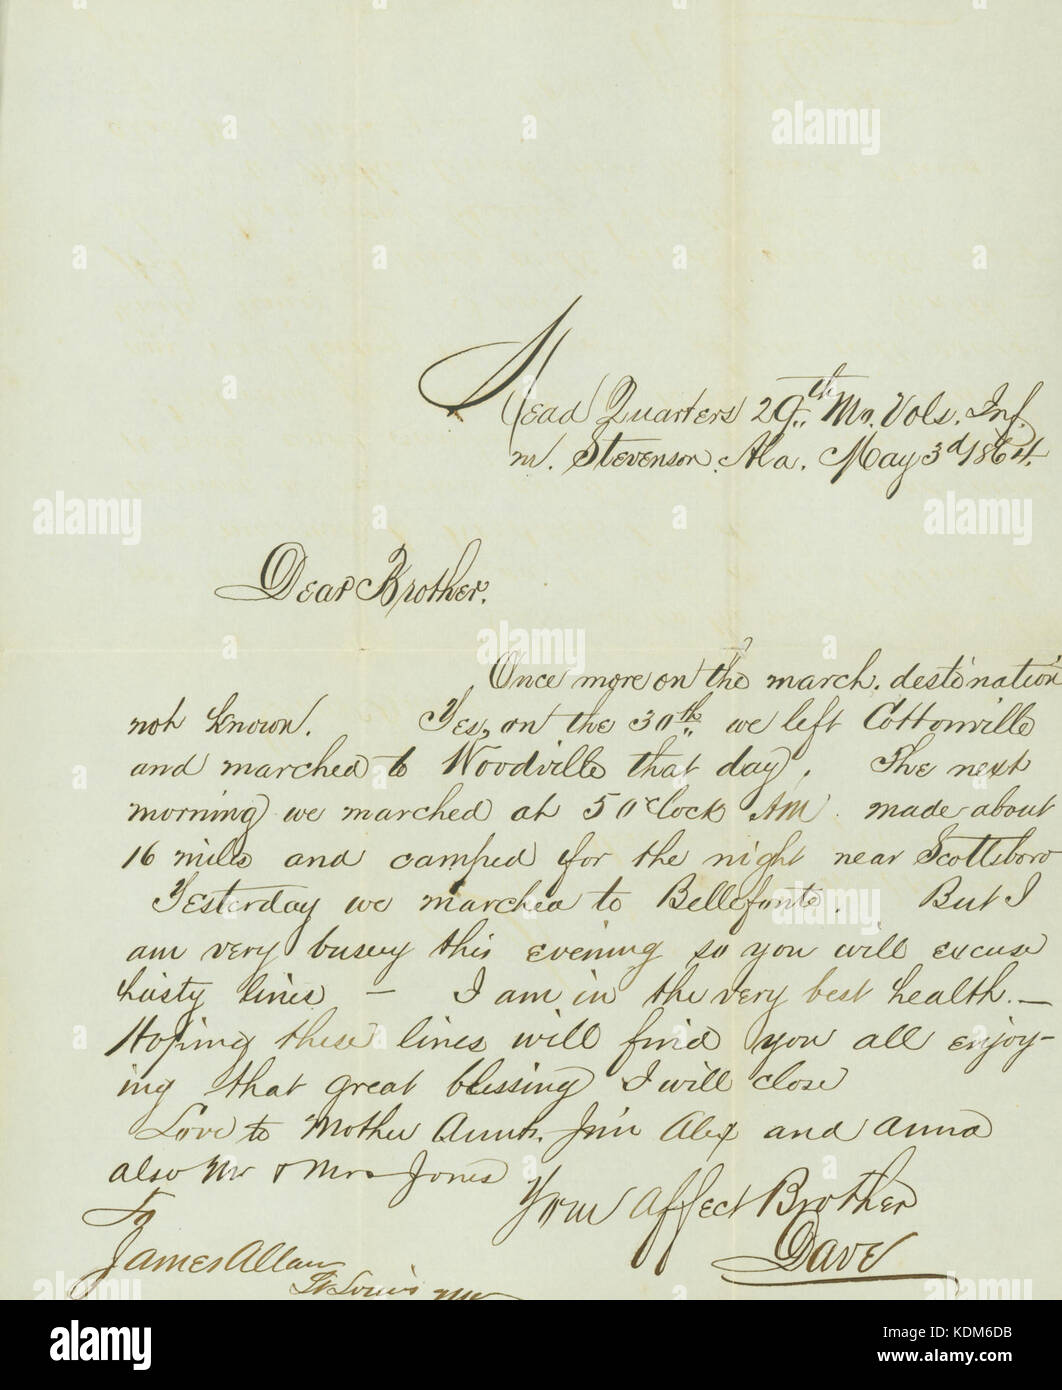 Head Quarters 29th Mo. Vols. Inf.
nr. Stevenson. Ala. May 3d 1864.
Dear Brother.
Once more on the march. destination
not known. Yes, on the 30th we left Cottonville
and marched to Woodville that day. The next
morning we marched at 5 O'Clock AM. made about
16 miles and camped for the night near Scottsboro
Yesterday we marched to Bellefonte. But I
am very busy this evening so you will excuse
hasty lines — I am in the very best health. —
Hoping these lines will find you all enjoy-
ing that great blessing I will close
Love to Mother Aunt. Jim Alex and Anna
also Mr & Mrs Jones
Your Affect Brother
Dave
To
James Allan
St Louis Mo
alamy
alamy
alamy
alamy
alamy
alamy
alamy
a
a
a
a
a
a
alamy
Image ID: KDM6DB
www.alamy.com